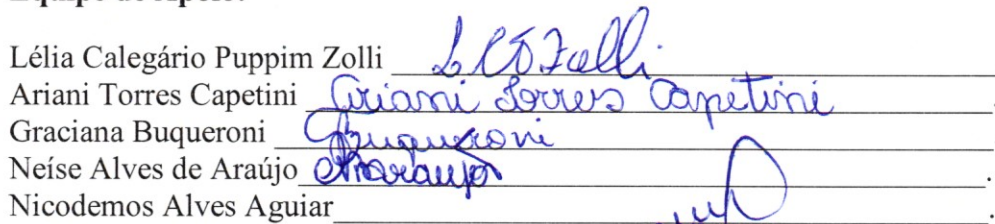 Lélia Calegário Puppim Zolli L C P Zolli.
Ariani Torres Capetini Ariani Torres Capetini.
Graciana Buqueroni GBuqueroni
Neíse Alves de Araújo NAraujo.
Nicodemos Alves Aguiar.